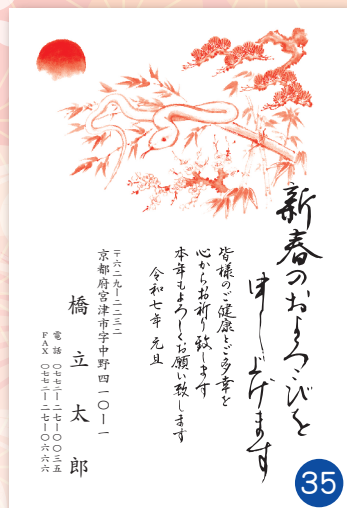 新春のおよろこびを
申し上げます
皆様のご健康とご多幸を
心からお祈り致します
本年もよろしくお願い致します
令和七年 元旦
〒六二九ー二二三二
京都府宮津市字中野四一〇ー一
橋立太郎
電話 〇七七二ー二七ー〇〇三五
FAX 〇七七二ー二七ー〇六六六
35